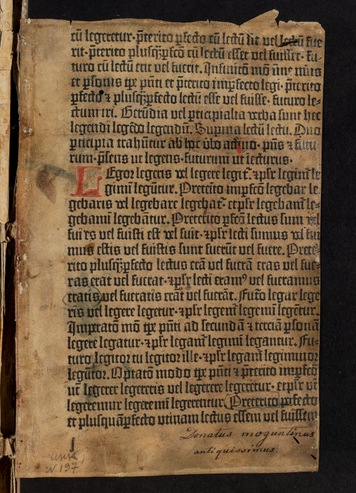 cū legeretur · p̄terito p̄fecto cū lectū sit vel lectū fue
rit · p̄terito plusq̄p̄fecto cū lectū esset vel fuisset · fu
turo cū lectū erit vel fuerit · Infinito mō sine nūis
et p̄sonis tꝑe p̄nti et p̄terito imp̄fecto legi · p̄terito
p̄fecto & plusq̄p̄fecto lectū esse vel fuisse · futuro le
ctum iri · Gerūdia vel pticipialia verba sunt hec
legendi legēdo legendū · Supina lectū lectu · Duo
pticipia trahūtur ab hoc ūbo
rum · p̄sens ut legens · futurum ut lecturus ·
Legor legeris vel legere legit̄ · & pl̄r legim̄ le
gimī legūtur · Pretērito imp̄fcō legebar le
gebaris vel legebare legebat̄ · et pl̄r legebam̄ le
gebamī legebāntur · Preterito p̄fcō lectus sum vel
fui es vel fuisti est vel fuit · & pl̄r lecti sumus vel fui
mus estis vel fuistis sunt fuerūt vel fuere · Prete
rito plusq̄p̄fcō lectus erā vel fuerā eras vel fue
ras erat vel fuerat · & pl̄r lecti eram᷒ vel fueramus
eratis vel fueratis erāt vel fuerāt · Futō legar lege
ris vel legere legetur · & pl̄r legem̄ legemī legētur ·
Impatō mō tꝑe p̄nti ad secundā & terciā p̄sonā
legere legatur · & pl̄r legam̄ legimī legantur · Fu
turo legitor tu legitor ille · & pl̄r legam̄ legimior
legūtor · Optatō modo tꝑe p̄nti & p̄terito imp̄fcō
utī legerer legereris vel legerere legeretur · et pl̄r utī
legeremur legeremī legerentur · Preterito p̄fecto
et plusquāp̄fecto utinam lectus essem vel fuissem
Donatus moguntinus
antiquissimus.
197